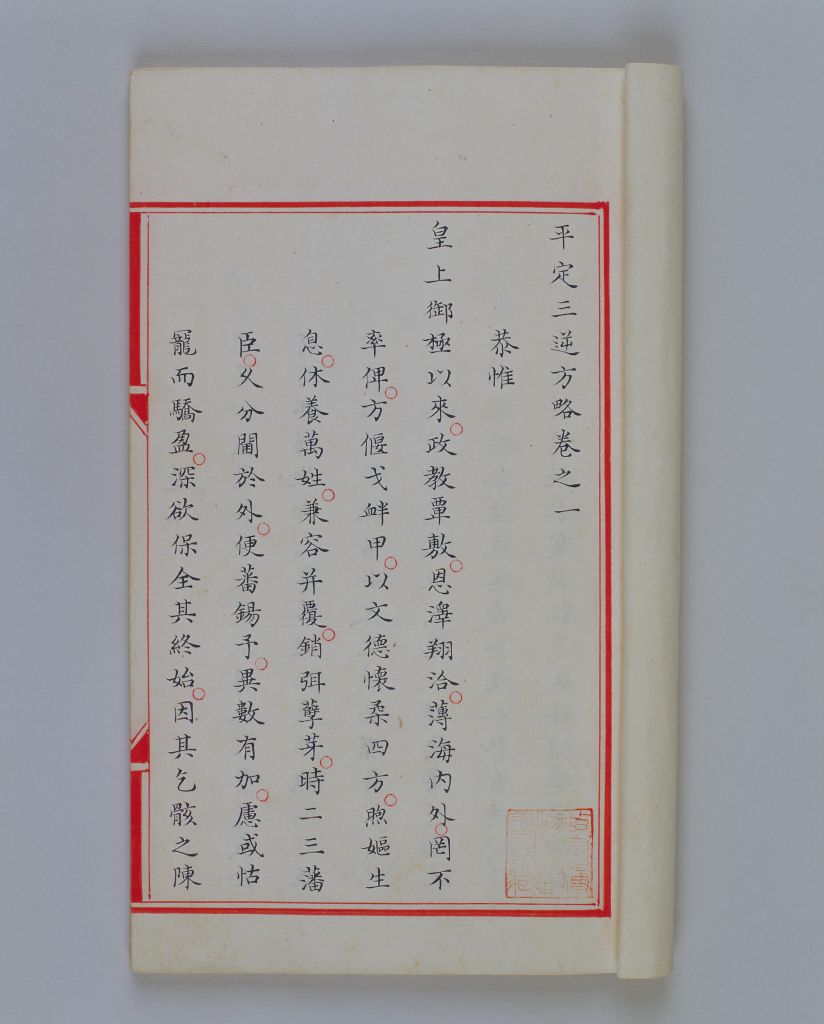 平定三逆方略卷之一
恭惟
皇上御極以來政教覃敷恩澤翔洽薄海內外罔不
率俾方偃戈衅甲以文德懷柔四方煦嫗生
息休養萬姓兼容并覆銷弭孽芽時二三藩
臣久分閫於外便蕃錫予異數有加慮或怙
寵而驕盈深欲保全其終始因其乞骸之陳